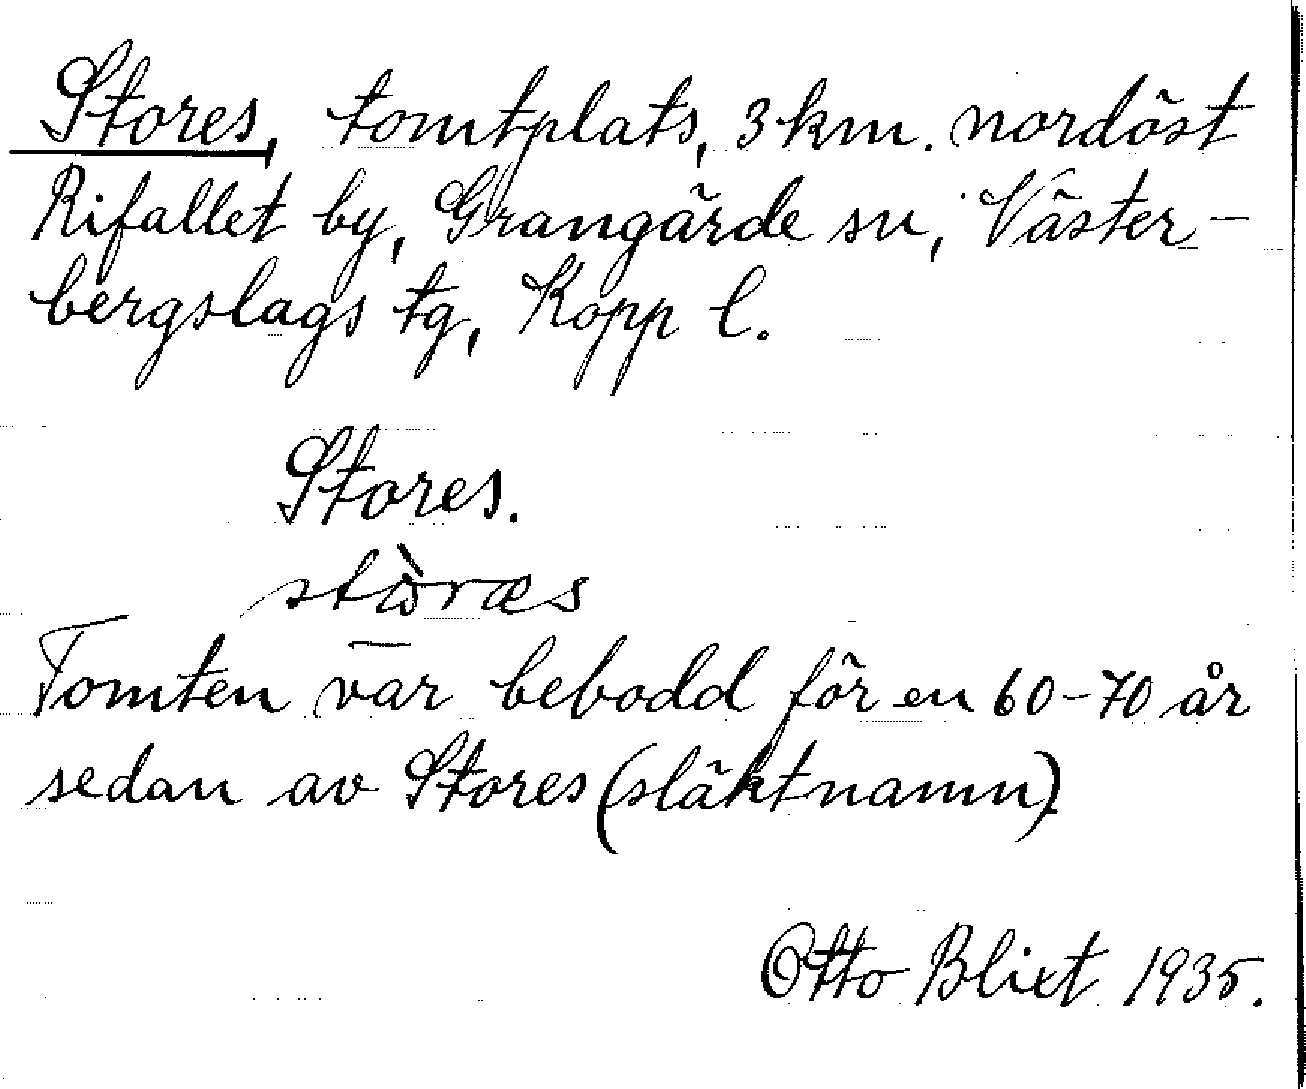 Stores, tomtplats, 3 km. nordöst
Rifallet by, Grangärde sn, Väster-
bergslags tg, Kopp l.
Stores.
stòræs
Tomten var bebodd för en 60-70 år
sedan av Stores (släktnamn)
Otto Blixt 1935.